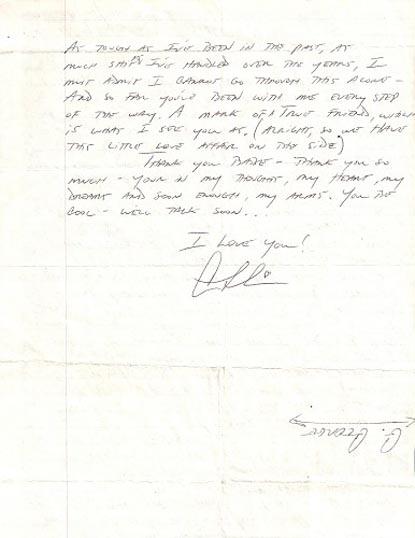 AS TOUGH AS I'VE BEEN IN THE PAST, AS
MUCH SHIT I'VE HANDLED OVER THE YEARS, I
MUST ADMIT I CANNOT GO THROUGH THIS ALONE -
AND SO FAR YOU'VE BEEN WITH ME EVERY STEP
OF THE WAY. A MARK OF A TRUE FRIEND, WHICH
IS WHAT I SEE YOU AS. (ALRIGHT, SO WE HAVE
THIS LITTLE LOVE AFFAIR ON THE SIDE)
THANK YOU BABE - THANK YOU SO
MUCH - YOUR IN MY THOUGHTS, MY HEART, MY
DREAMS AND SOON ENOUGH, MY ARMS. YOU BE
COOL - WE'LL TALK SOON...
I LOVE YOU!
G.